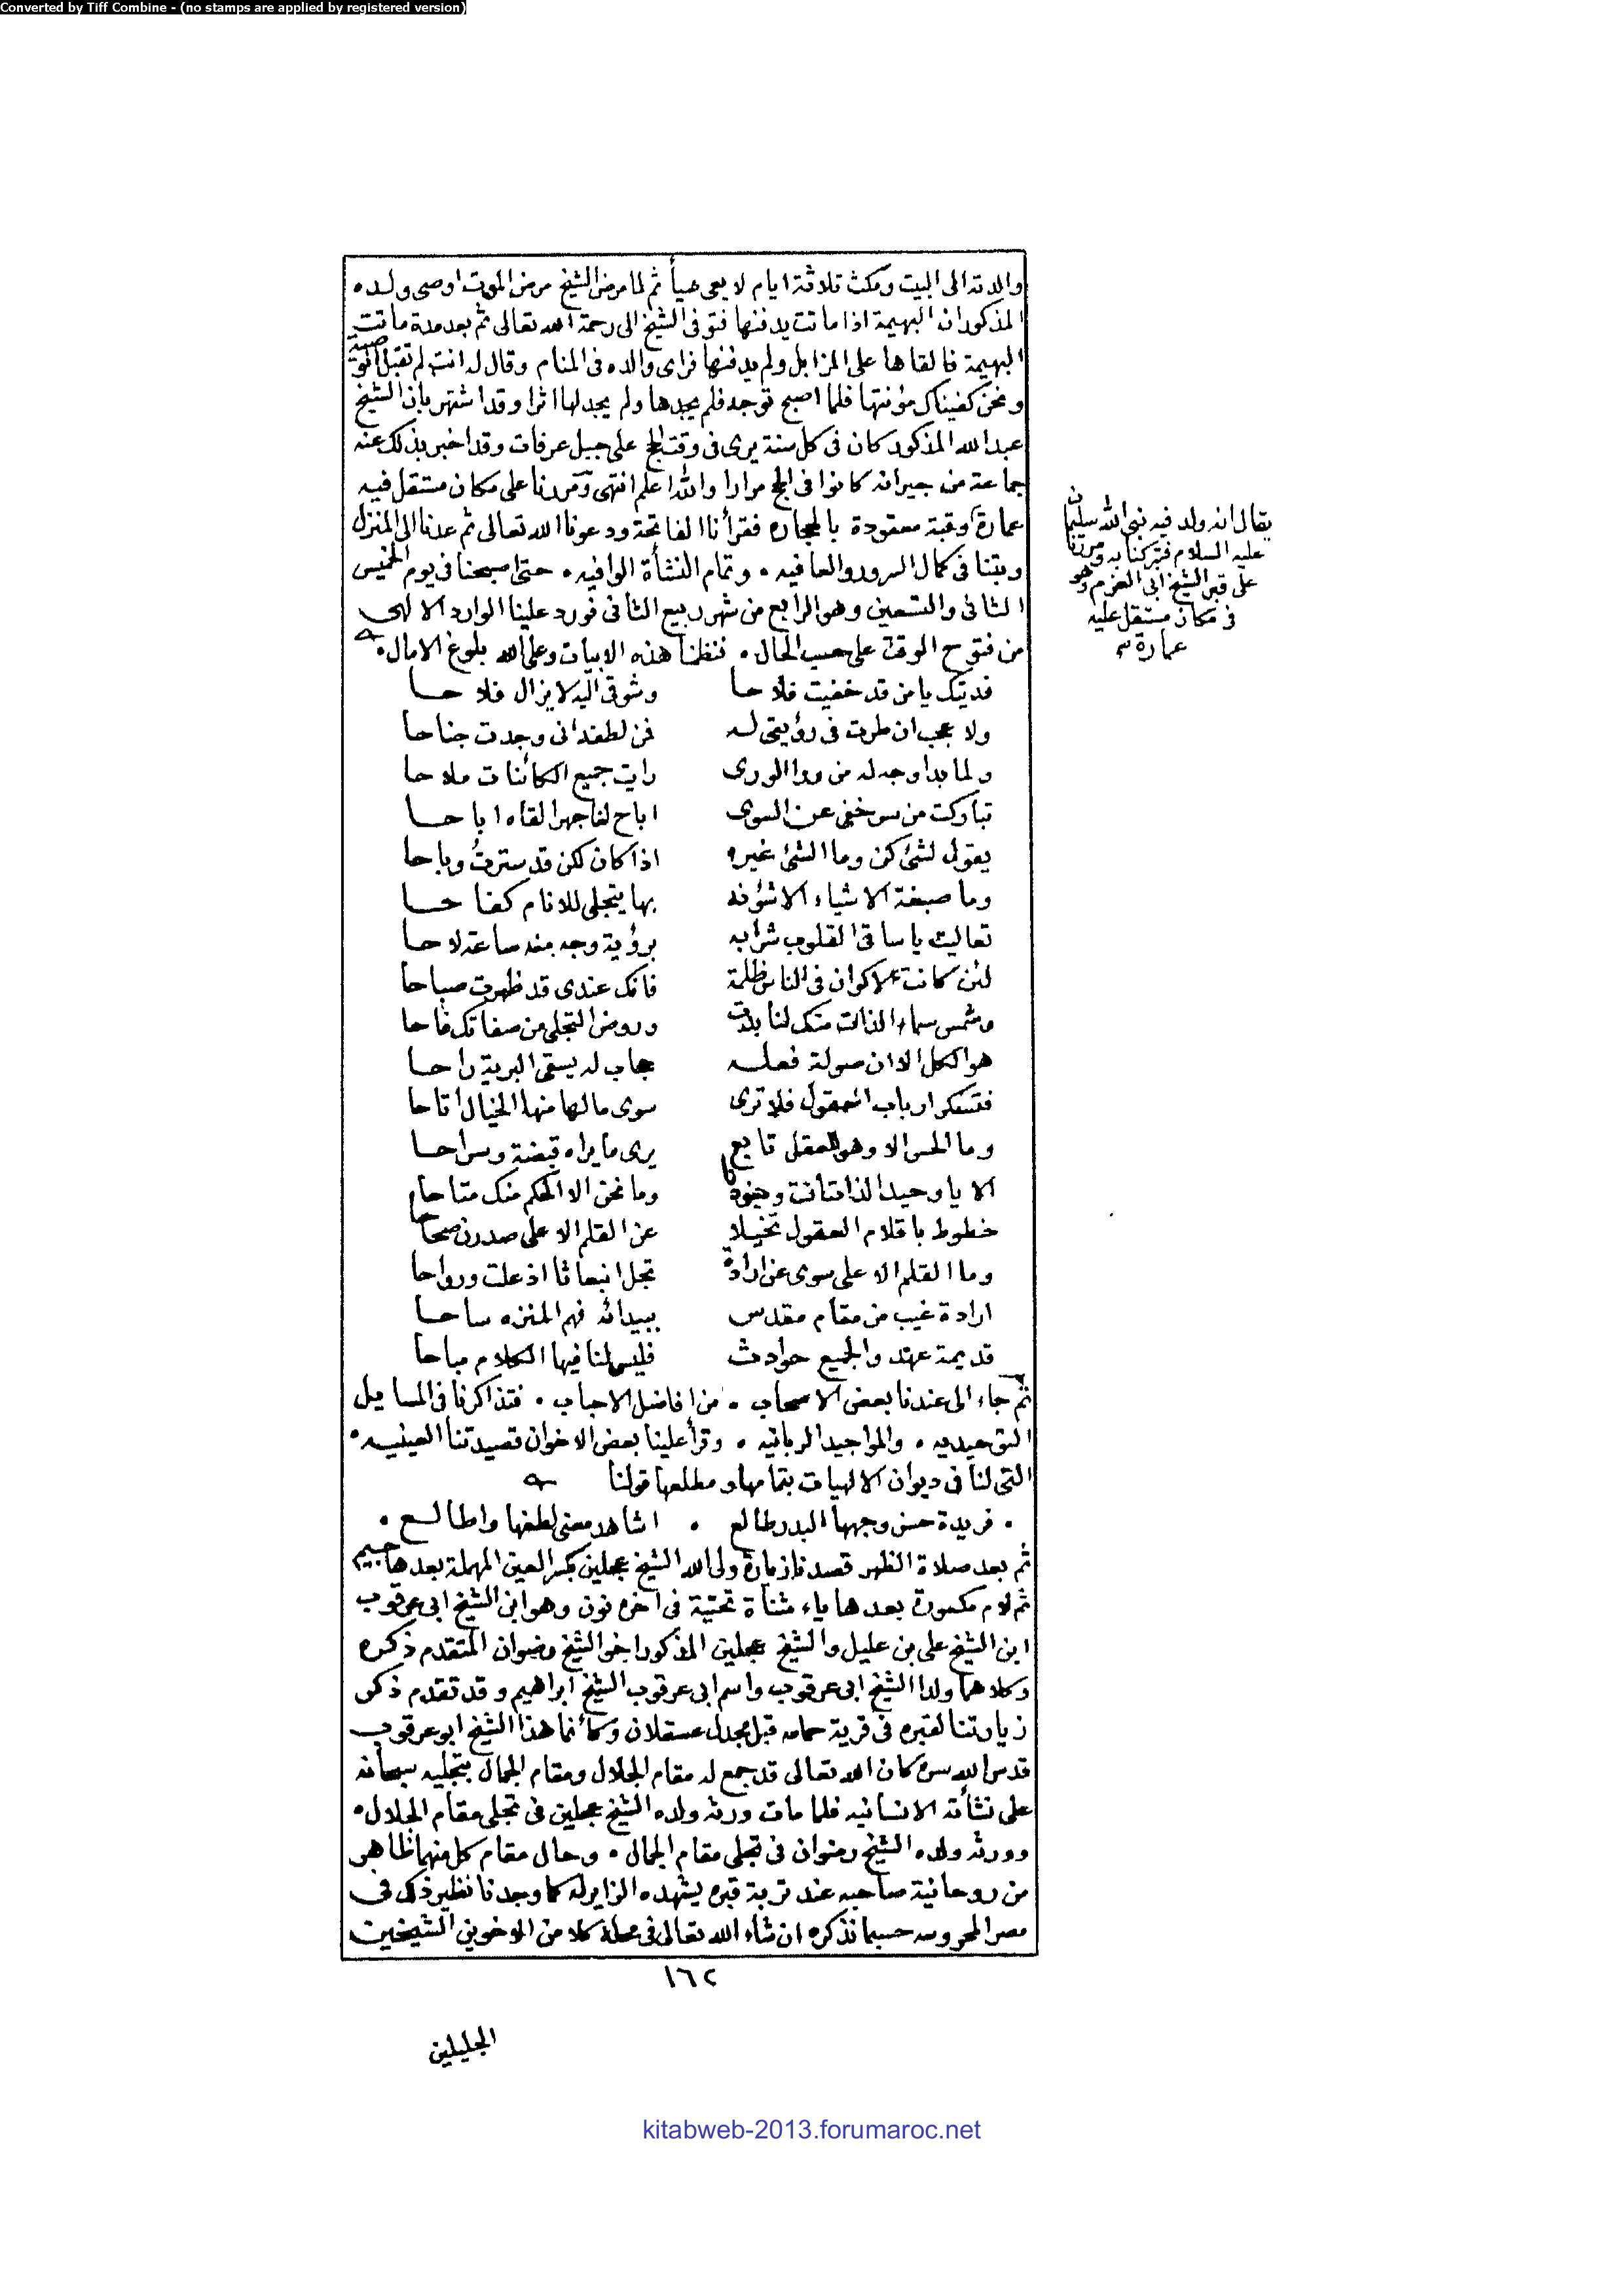 Converted by Tiff Combine - (no stamps are applied by registered version)
والدته الى البيت ومكث ثلاثة ايام لا يعى شيأ ثم لما مرض الشيخ مرض الموت اوصى ولده
المذكور ان البهيمة اذا ماتت يدفنها فتوفى الشيخ الى رحمة الله تعالى ثم بعد مدة ماتت
البهيمة فالقاها على المزابل ولم يدفنها فراى والده فى المنام وقال له انت لم تقبل الوصية
ونحن كفيناك مؤنتها فلما اصبح توجه فلم يجدها ولم يجد لها اثرا وقد اشتهر بان الشيخ
عبد الله المذكور كان فى كل سنة يرى فى وقت الحج على جبل عرفات وقد اخبر بذلك عنه
جماعة من جيرانه كانوا فى الحج مرارا والله اعلم انتهى ومررنا على مكان مستقل فيه
عمارة وقبة معقودة بالحجاره فقرأنا الفاتحة ودعونا الله تعالى ثم عدنا الى المنزل
وبتنا فى كمال السرور والعافيه . وتمام النشأة الوافيه . حتى اصبحنا فى يوم الخميس
الثانى والتسعين وهو الرابع من شهر ربيع الثانى فورد علينا الوارد الالهى
من فتوح الوقت على حسب الحال . فنظمنا هذه الابيات وعلى الله بلوغ الامال .
يقال انه ولد فيه نبى الله سليمان
عليه السلام فتبركنا به ومررنا
على قبر الشيخ ابى العزم وهو
فى مكان مستقل عليه
عمارة
فديتك يا من قد خفيت فلاحا وشوقى اليه لا يزال فلاحا
ولا عجب ان طرت فى رؤيتى له فمن لطفه انى وجدت جناحا
ولما بدا وجه له من ورا الورى رايت جميع الكائنات ملاحا
تباركت من سر خفى عن السوى اباح لنا جهرا لقاه اباحا
يقول لشئ كن وما الشئ غيره اذا كان لكن قد سترت وباحا
وما صبغة الاشياء الا شؤنه بها يتجلى للانام كفاحا
تعاليت يا ساقى القلوب شرابه برؤية وجه منه ساعة لاحا
لئن كانت الاكوان فى الناس ظلمة فانك عندى قد ظهرت صباحا
وشمس سماء الذات منك لنا بدت وروض التجلى من صفاتك فاحا
هو الكل الا ان صولة فعله حجاب له يسقى البرية راحا
فتسكر ارباب العقول فلا ترى سوى ما لها منها الخيال اتاحا
وما الحس الا وهو للعقل تابع يرى ما يراه قبضة وسراحا
الا يا وحيد الذات انت وجودنا وما نحن الا الحكم منك متاحا
خطوط باقلام العقول تخيلا عن القلم الاعلى صدرن صحاحا
وما القلم الاعلى سوى عن ارادة تجل انبعاثا اذ علت ورواحا
ارادة غيب من مقام مقدس ببيدائه فهم المنزه ساحا
قديمة عهد والجميع حوادث فليس لنا فيها الكلام مباحا
ثم جاء الى عندنا بعض الاصحاب . من افاضل الاحباب . فتذاكرنا فى المسايل
التوحيديه . والمواجيد الربانيه . وقرأ علينا بعض الاخوان قصيدتنا العينيه .
التى لنا فى ديوان الالهيات بتمامها ومطلعها قولنا
. فريدة حسن وجهها البدر طالع . اشاهد معنى لطفها واطالع .
ثم بعد صلاة الظهر قصدنا زيارة ولى الله الشيخ عجلين بكسر العين المهملة بعدها جيم
ثم لام مكسورة بعدها ياء مثناة تحتية فى اخره نون وهو ابن الشيخ ابى عرقوب
ابن الشيخ على بن عليل والشيخ عجلين المذكور اخو الشيخ رضوان المتقدم ذكره
وكلاهما ولدا الشيخ ابى عرقوب واسم ابى عرقوب الشيخ ابراهيم وقد تقدم ذكر
زيارتنا لقبره فى قرية حمامه قبل مجدل عسقلان وكأنما هذا الشيخ ابو عرقوب
قدس الله سره كان الله تعالى قد جمع له مقام الجلال ومقام الجمال بتجليه سبحانه
على نشأته الانسانيه فلما مات ورثه ولده الشيخ عجلين فى تجلى مقام الجلال .
وورثه ولده الشيخ رضوان فى تجلى مقام الجمال . وحال مقام كل منهما ظاهر
من روحانية صاحبه عند تربة قبره يشهده الزاير له كما وجدنا نظير ذلك فى
مصر المحروسه حسبما نذكره ان شاء الله تعالى فى محله كلا من الاخوين الشيخين
١٦٢
الجليلين
kitabweb-2013.forumaroc.net